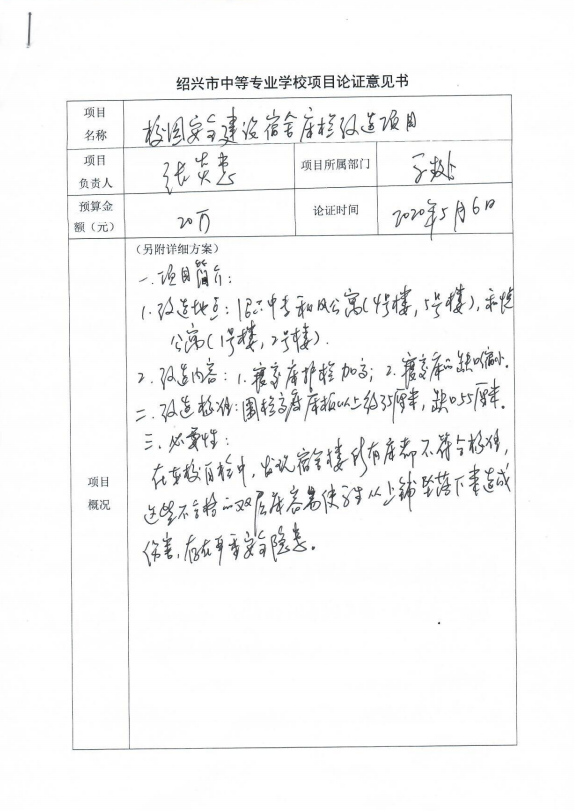 绍兴市中等专业学校项目论证意见书
项目名称 校园安全建设宿舍床栏改造项目
项目负责人 张 项目所属部门
预算金额（元） 20万 论证时间 2020年5月6日
项目概况
（另附详细方案）
一、项目简介：
1、改造地点：绍兴中专和风公寓（4号楼，5号楼），和悦
公寓（1号楼，2号楼）.
2、改造内容：1、寝室床护栏加高；2、寝室床的缺口缩小.
二、改造标准：围栏高度床板以上约35厘米，缺口55厘米。
三、必要性：
在本校自检中，发现宿舍楼所有床都不符合标准，
这些不合格的双层床容易使学生从上铺坠落下来造成
伤害，存在严重安全隐患。